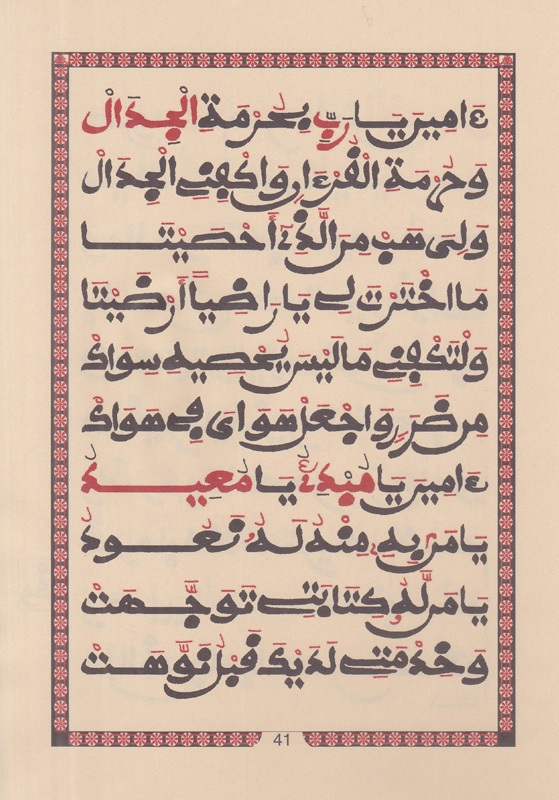 ءامين يا رب بحرمة الجدال
وحرمة القرءان واكفني الجدال
ولي هب من الذي أحصيتا
ما اخترت لي يا راضيا أرضيتا
ولتكفني ما ليس يحصيه سواك
من ضرر واجعل هواي في هواك
ءامين يا مبدئ يا معيد
يا من به منه له نعود
يا من له كتابتي توجهت
وخدمتي لديك قبل نوهت
41